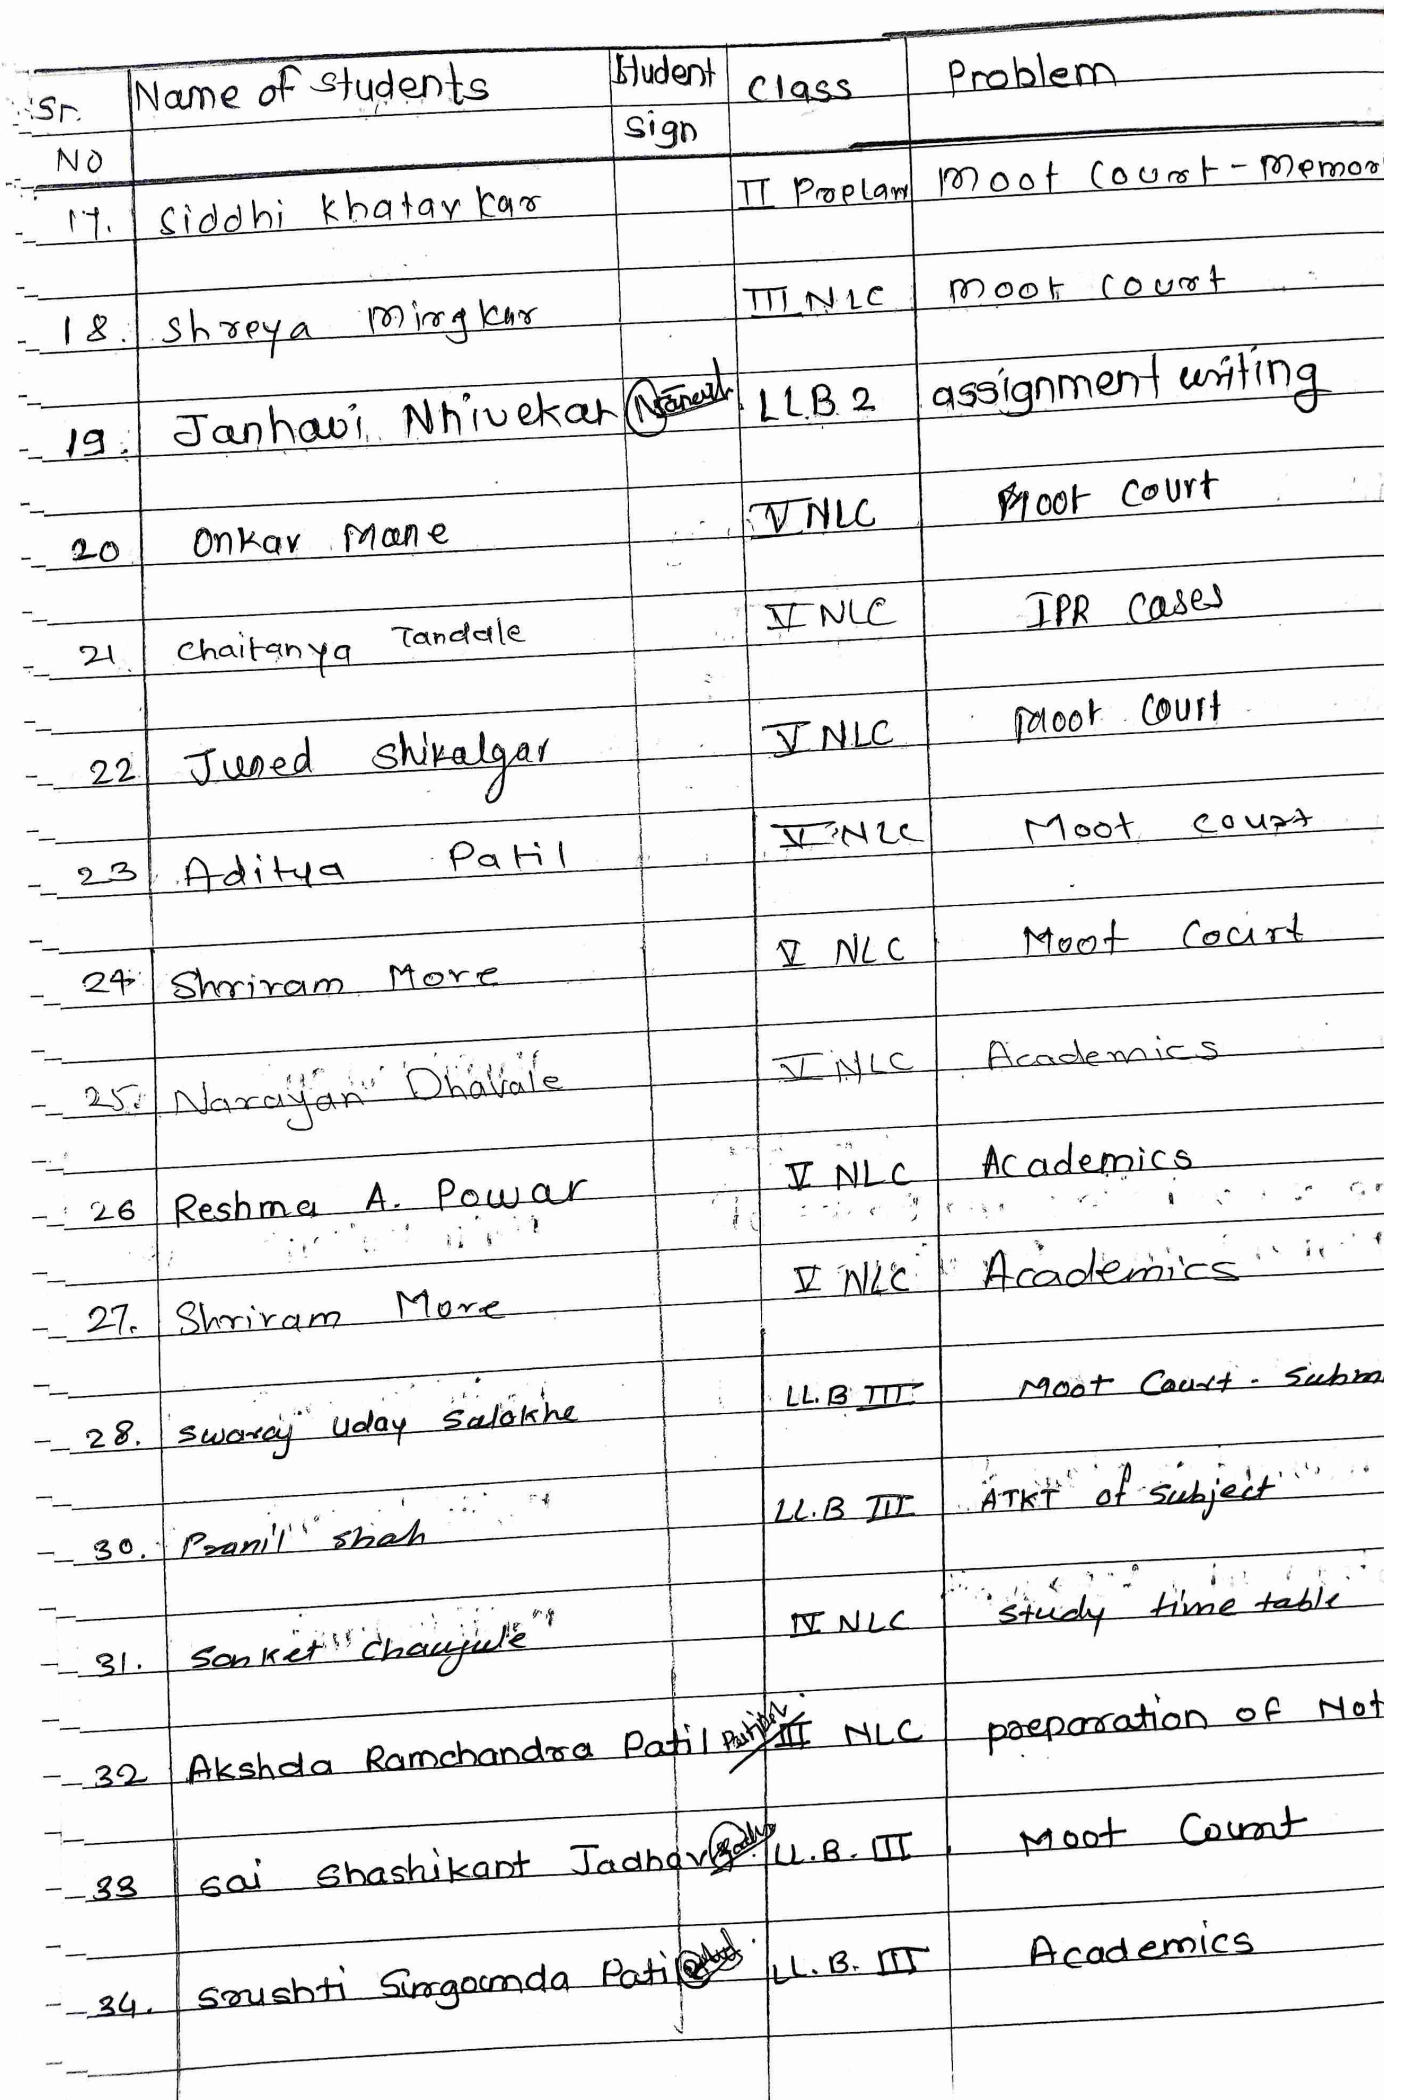 Sr. Name of students Student Class Problem
NO Sign
17. Siddhi Khatavkar II Prelaw Moot Court - Memor
18. Shreya Mirgkar III NLC Moot Court
19. Janhavi Nhivekar LLB 2 assignment writing
20 Onkar Mane V NLC Moot Court
21 Chaitanya Tandale V NLC IPR Cases
22 Juned Shikalgar V NLC Moot Court
23 Aditya Patil V NLC Moot Court
24 Shriram More V NLC Moot Court
25. Narayan Dhavale V NLC Academics
26 Reshma A. Powar V NLC Academics
27. Shriram More V NLC Academics
28. Swaraj Uday Salokhe LL.B III Moot Court - Subm
30. Pranil Shah LL.B III ATKT of Subject
31. Sanket Chaujule IV NLC Study time table
32 Akshda Ramchandra Patil III NLC preparation of Not
33 Sai Shashikant Jadhav LL.B. III Moot Court
34. Srushti Sirgounda Patil LL.B. III Academics